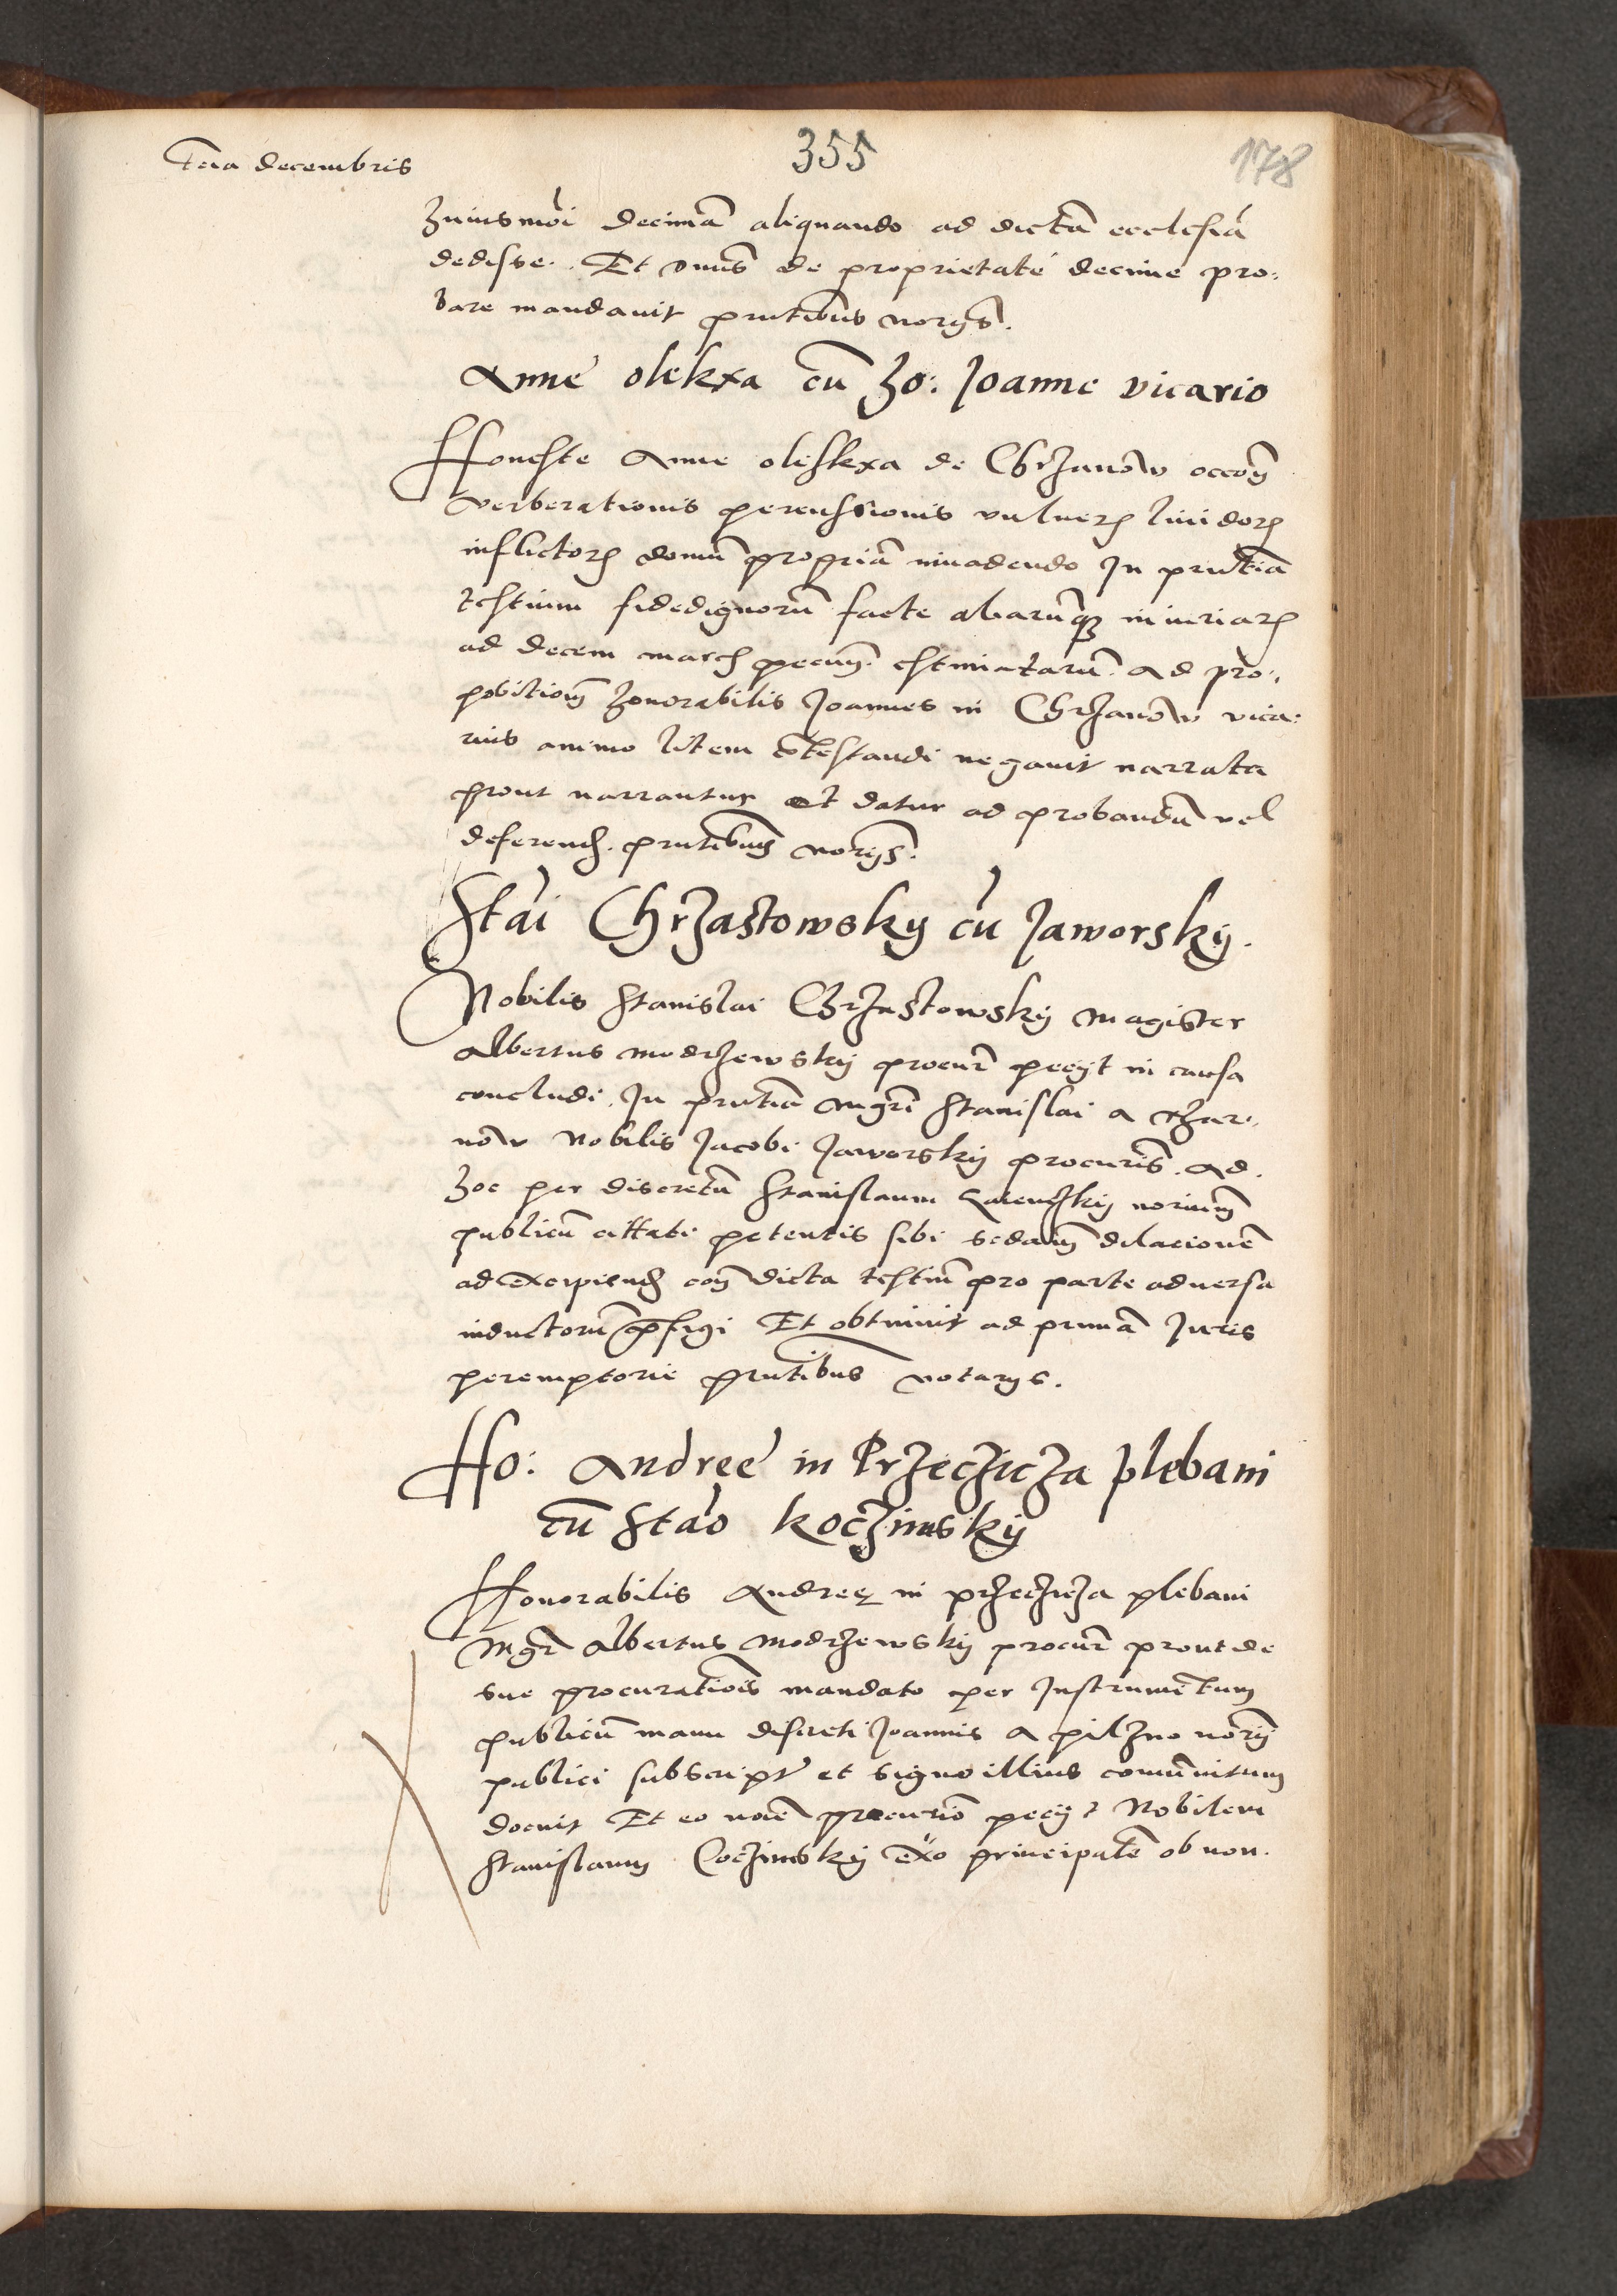 355
178
Tertia decembris
huiusmoi decimā aliquando ad dictā ecclesiā
dedisse. Et onus de proprietate decime pro:
bare mandavit pn̄tibus norijs.
Anne olekxa cū ho: Joanne vicario
Honeste Anne oleskxa de Chrzanow occoē
verberationis percussionis vulnerū lividorū
inflictorū domū propriā invadendo In pn̄tia
testium fidedignorū facte aliarūq3 iniuriarū
ad decem march pecun. estimatarū. Ad pro:
positionē honorabilis Joannes in Chrzanow vica:
rius animo litem cōtestandi negavit narrata
prout narrantur et datur ad probandū vel
deferend. pn̄tibus norijs.
Stāi Chrząstowsky cū Jaworsky.
Nobilis Stanislai Chrząstowsky Magister
Albertus Modrzewsky procur̄ pecijt in causa
concludi. In pn̄tia mgrī Stanislai a Czar:
now Nobilis Jacobi Jaworsky procurīs. Ad
hoc per discretū Stanislaum notarium
publicū cittati petentis sibi 2dam dilacionē
ad excipiend con dicta testiū pro parte adversa
inductorū p̄figi Et obtinuit ad primā Juris
peremptorie pn̄tibus notarijs.
Ho: Andree in Przeczicza plebani
cū Stāo Koczinsky
Honorabilis Andreę in przeczicza plebani
Mgr̄ Albertus Modrzewsky procur̄ prout de
sue procuratiōis mandato per Instrumētum
publicū manu discreti Joannis a pilzno norij
publici subscript̄ et signo illius comūnitum
docuit Et eo noīe procurio pecijt Nobilem
Stanislaum Coczinsky ex̄o principalē ob non